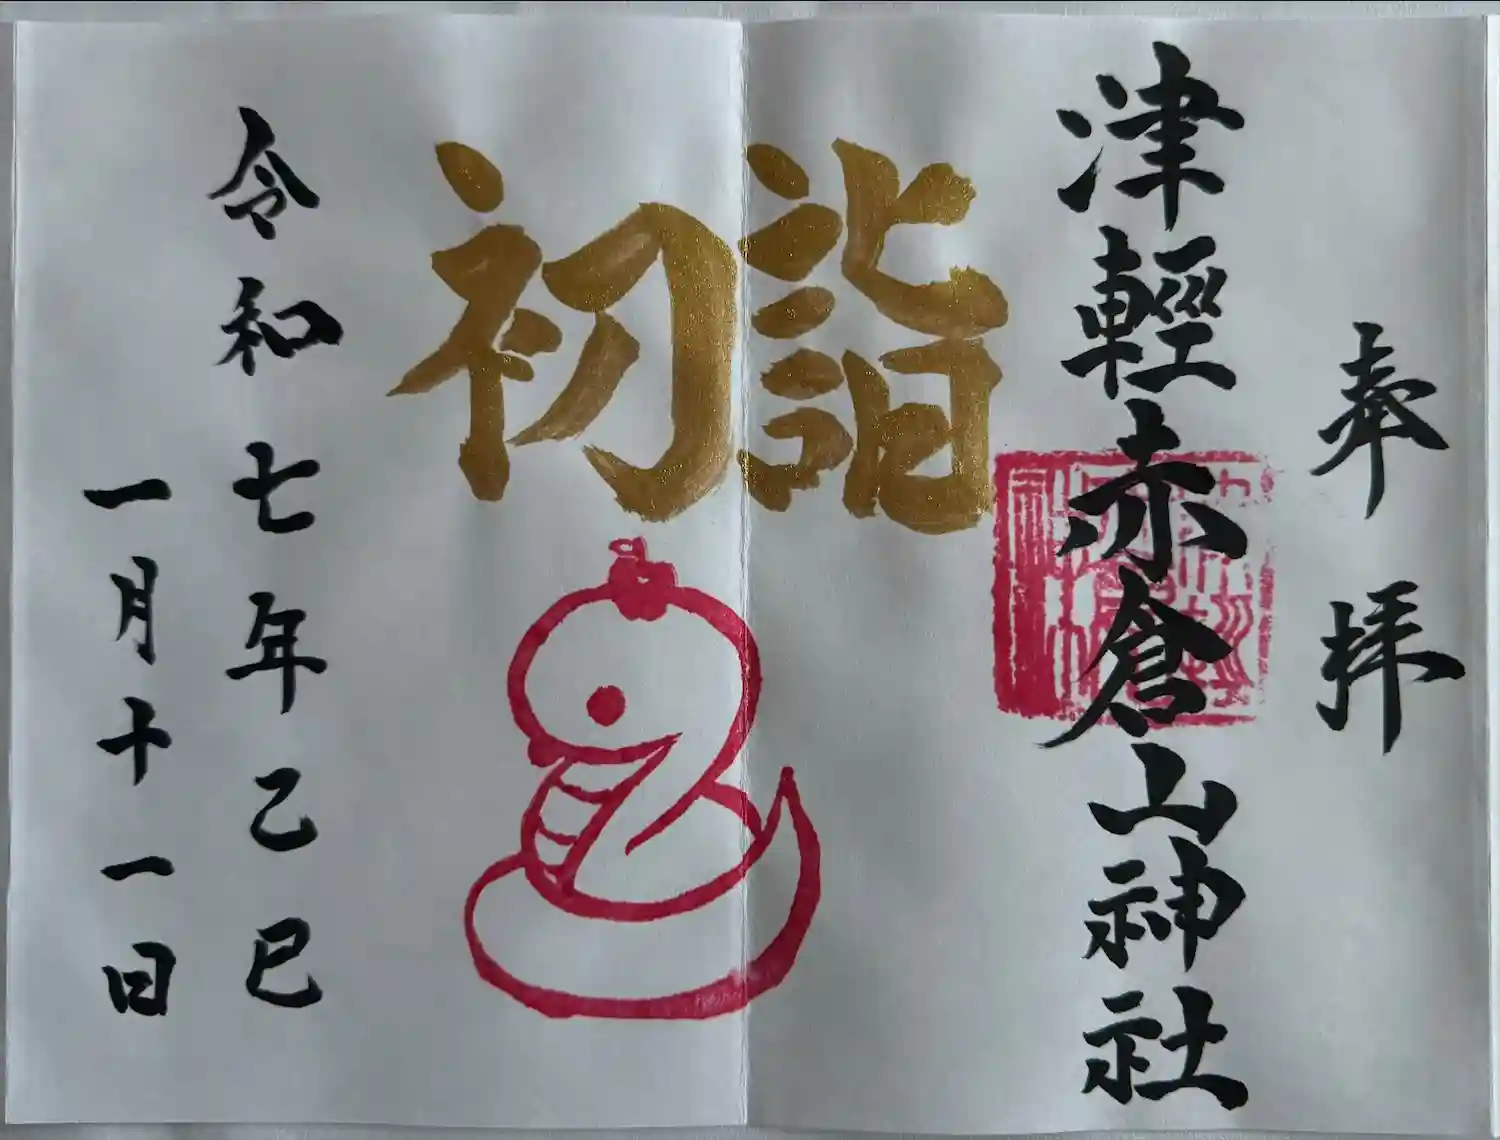 奉拝
津輕赤倉山神社
初詣
令和七年乙巳
一月十一日